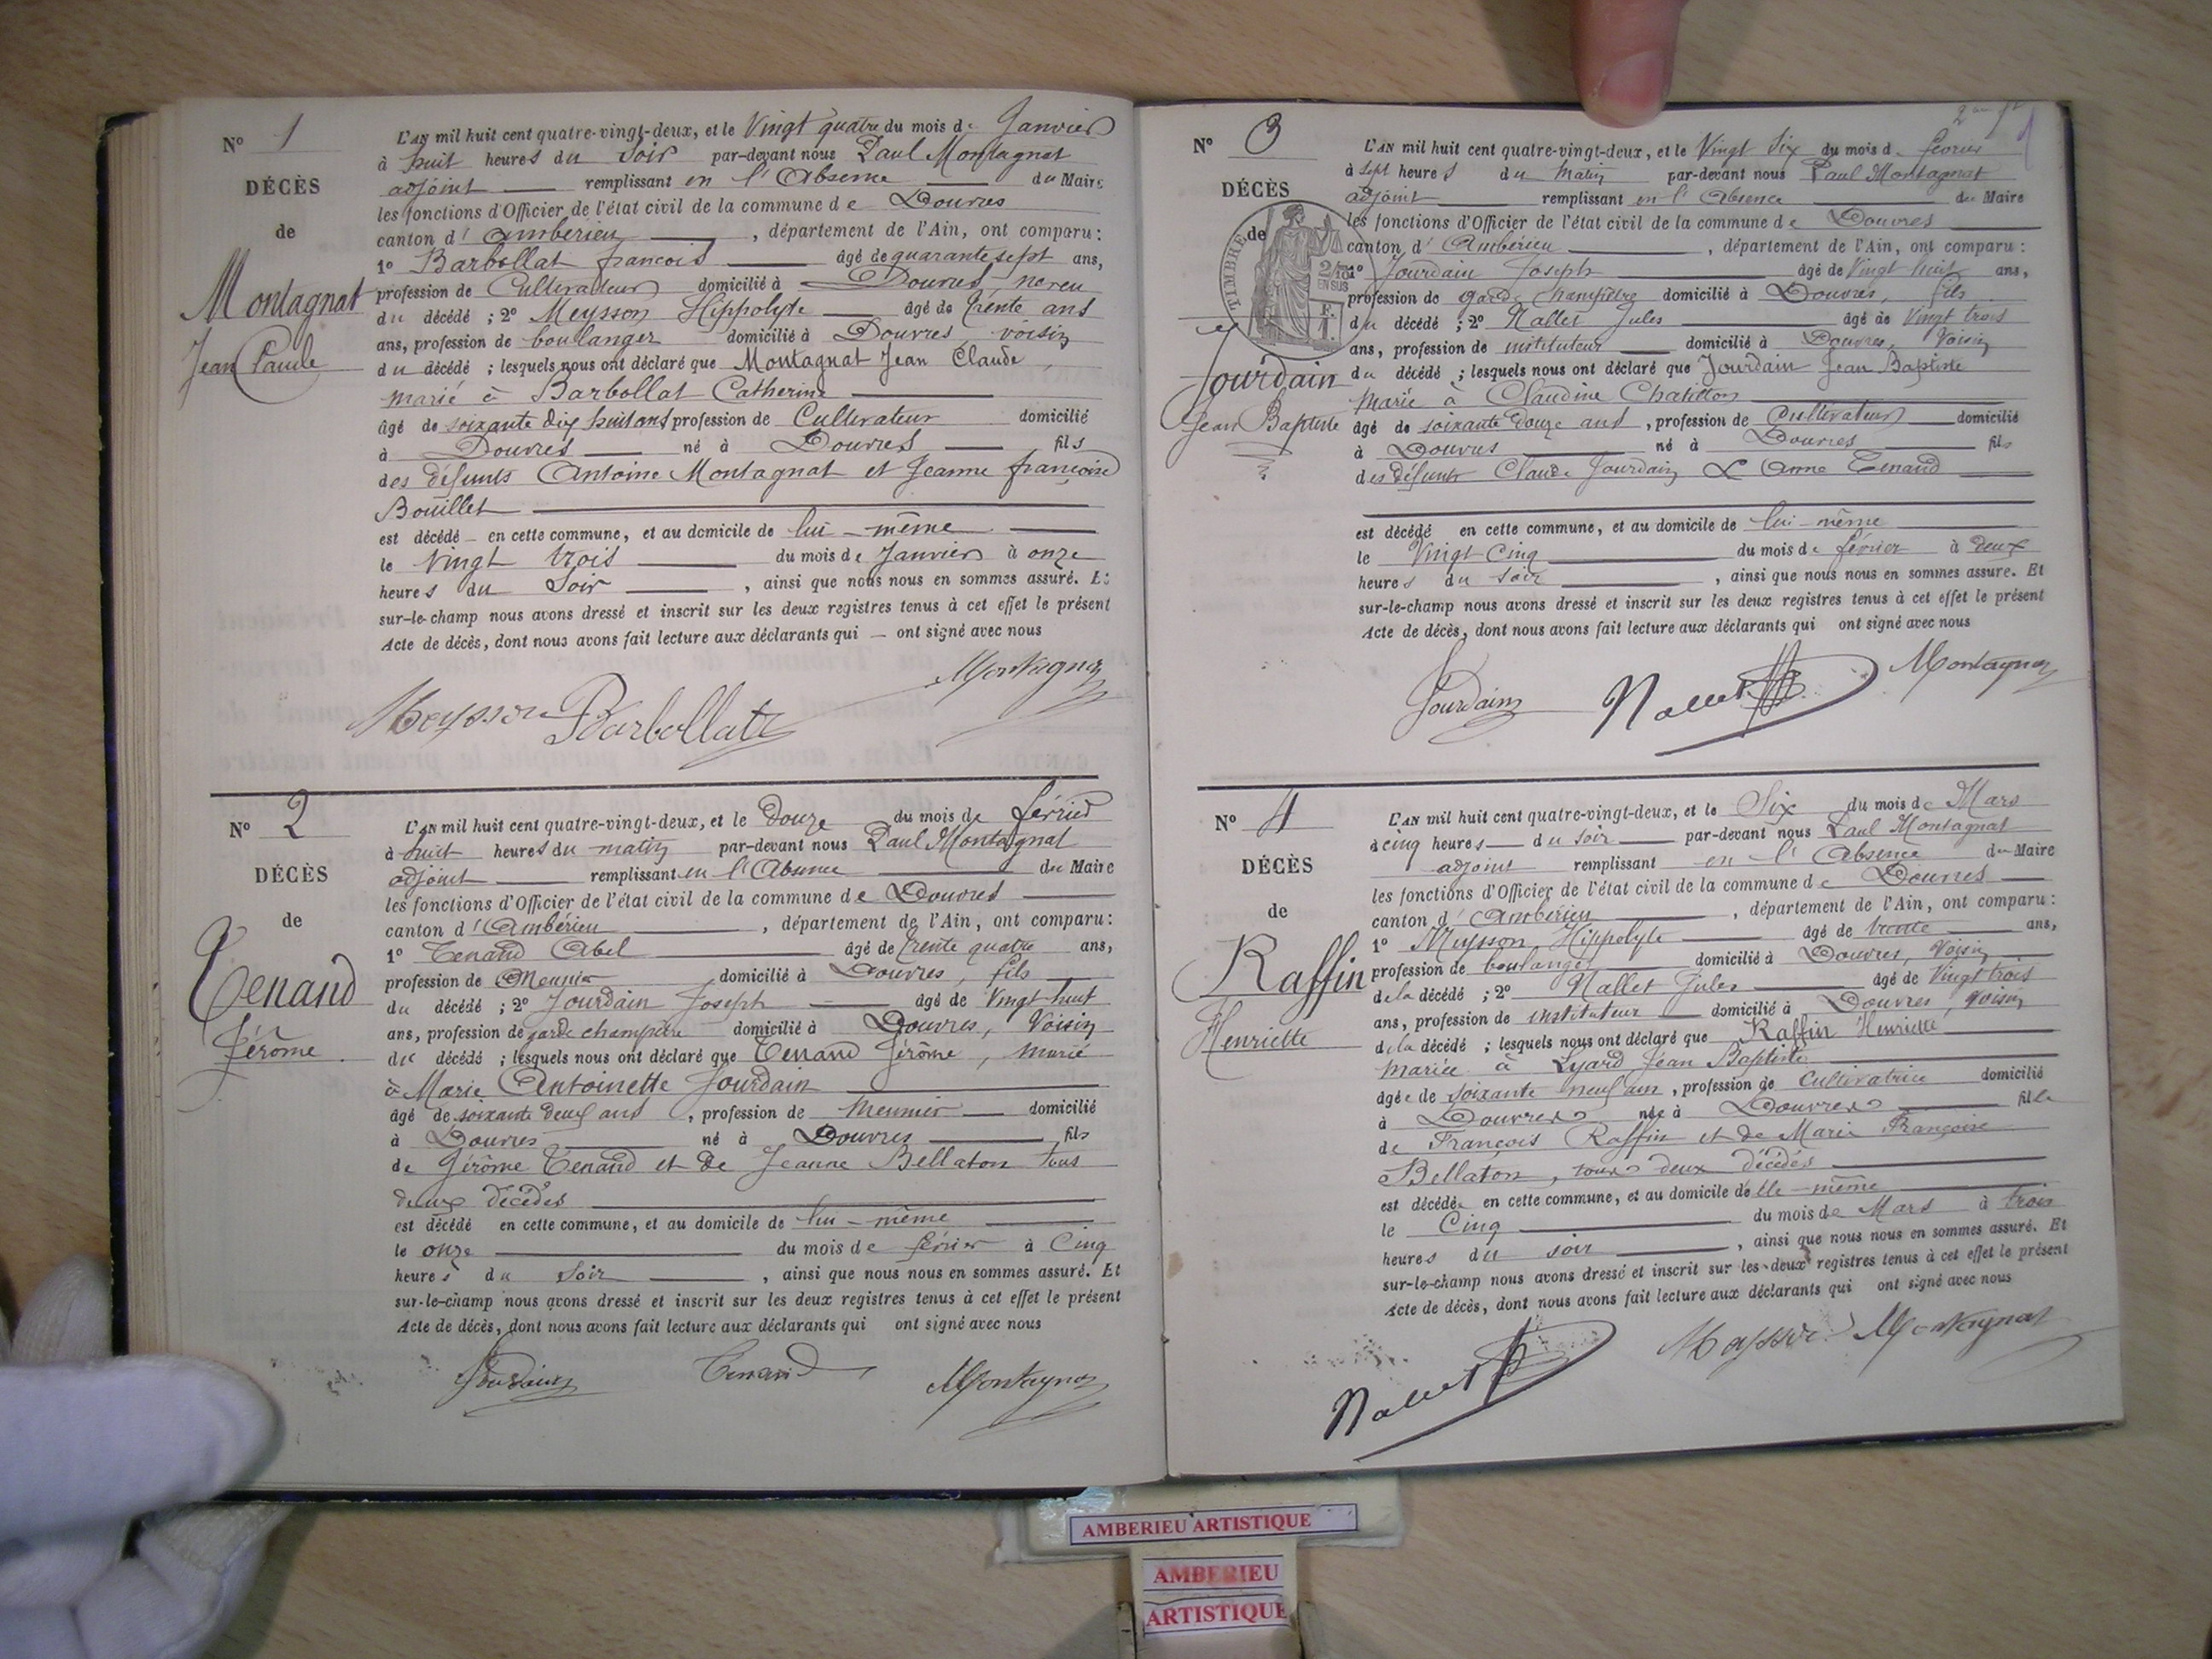 N° 1
DÉCÈS
de
Montagnat
Jean Claude
L'AN mil huit cent quatre-vingt-deux, et le Vingt quatre du mois de Janvier
à huit heures du Soir par-devant nous Paul Montagnat
adjoint remplissant en l'Absence du Maire
les fonctions d'Officier de l'état civil de la commune de Douvres
canton d'Ambérieu, département de l'Ain, ont comparu:
1° Barbollat francois âgé de quarante sept ans,
profession de Cultivateur domicilié à Douvres, neveu
du décédé ; 2° Meysson Hippolyte âgé de trente ans
ans, profession de boulanger domicilié à Douvres, voisin
du décédé ; lesquels nous ont déclaré que Montagnat Jean Claude,
marié à Barbollat Catherine
âgé de soixante dix huit ans profession de Cultivateur domicilié
à Douvres né à Douvres fils
des défunts Antoine Montagnat et Jeanne françoise
Bouillet
est décédé en cette commune, et au domicile de lui-même
le Vingt trois du mois de Janvier à onze
heures du Soir, ainsi que nous nous en sommes assuré. Et
sur-le-champ nous avons dressé et inscrit sur les deux registres tenus à cet effet le présent
Acte de décès, dont nous avons fait lecture aux déclarants qui ont signé avec nous
Montagnat
Meysson Barbollat
N° 2
DÉCÈS
de
Tenand
Jérôme
L'AN mil huit cent quatre-vingt-deux, et le Douze du mois de février
à huit heures du matin par-devant nous Paul Montagnat
adjoint remplissant en l'Absence du Maire
les fonctions d'Officier de l'état civil de la commune de Douvres
canton d'Ambérieu, département de l'Ain, ont comparu:
1° Tenand Abel âgé de trente quatre ans,
profession de Meunier domicilié à Douvres, fils
du décédé ; 2° Jourdain Joseph âgé de Vingt-huit
ans, profession de garde champêtre domicilié à Douvres, Voisin
du décédé ; lesquels nous ont déclaré que Tenand Jérôme, marié
à Marie Antoinette Jourdain
âgé de soixante deux ans, profession de Meunier domicilié
à Douvres né à Douvres fils
de Jérôme Tenand et de Jeanne Bellaton tous
deux décédés
est décédé en cette commune, et au domicile de lui-même
le onze du mois de février à Cinq
heures du Soir, ainsi que nous nous en sommes assuré. Et
sur-le-champ nous avons dressé et inscrit sur les deux registres tenus à cet effet le présent
Acte de décès, dont nous avons fait lecture aux déclarants qui ont signé avec nous
Jourdain Tenand Montagnat
N° 3
DÉCÈS
de
TIMBRE
2/10 EN SUS
F. 1.
Jourdain
Jean Baptiste
L'AN mil huit cent quatre-vingt-deux, et le Vingt Six du mois de février
à sept heures du Matin par-devant nous Paul Montagnat
adjoint remplissant en l'Absence du Maire
les fonctions d'Officier de l'état civil de la commune de Douvres
canton d'Ambérieu, département de l'Ain, ont comparu:
1° Jourdain Joseph âgé de Vingt huit ans,
profession de garde champêtre domicilié à Douvres, fils
du décédé ; 2° Nallet Jules âgé de Vingt trois
ans, profession de instituteur domicilié à Douvres, Voisin
du décédé ; lesquels nous ont déclaré que Jourdain Jean Baptiste
Marié à Claudine Chatillon
âgé de soixante douze ans, profession de Cultivateur domicilié
à Douvres né à Douvres fils
des défunts Claude Jourdain & Anne Tenand
est décédé en cette commune, et au domicile de lui-même
le Vingt Cinq du mois de février à deux
heures du soir, ainsi que nous nous en sommes assuré. Et
sur-le-champ nous avons dressé et inscrit sur les deux registres tenus à cet effet le présent
Acte de décès, dont nous avons fait lecture aux déclarants qui ont signé avec nous
Jourdain Nallet Montagnat
N° 4
DÉCÈS
de
Raffin
Henriette
L'AN mil huit cent quatre-vingt-deux, et le Six du mois de Mars
à cinq heures du soir par-devant nous Paul Montagnat
adjoint remplissant en l'Absence du Maire
les fonctions d'Officier de l'état civil de la commune de Douvres
canton d'Ambérieu, département de l'Ain, ont comparu:
1° Meysson Hippolyte âgé de trente ans,
profession de boulanger domicilié à Douvres, Voisin
de la décédé ; 2° Nallet Jules âgé de Vingt trois
ans, profession de instituteur domicilié à Douvres, Voisin
de la décédé ; lesquels nous ont déclaré que Raffin Henriette
mariée à Lyard Jean Baptiste
âgée de soixante neuf ans, profession de Cultivatrice domicilié
à Douvres née à Douvres fille
de François Raffin et de Marie Françoise
Bellaton, tous deux décédés
est décédée en cette commune, et au domicile de elle-même
le Cinq du mois de Mars à trois
heures du soir, ainsi que nous nous en sommes assuré. Et
sur-le-champ nous avons dressé et inscrit sur les deux registres tenus à cet effet le présent
Acte de décès, dont nous avons fait lecture aux déclarants qui ont signé avec nous
Nallet Meysson Montagnat
AMBERIEU ARTISTIQUE
AMBERIEU
ARTISTIQUE